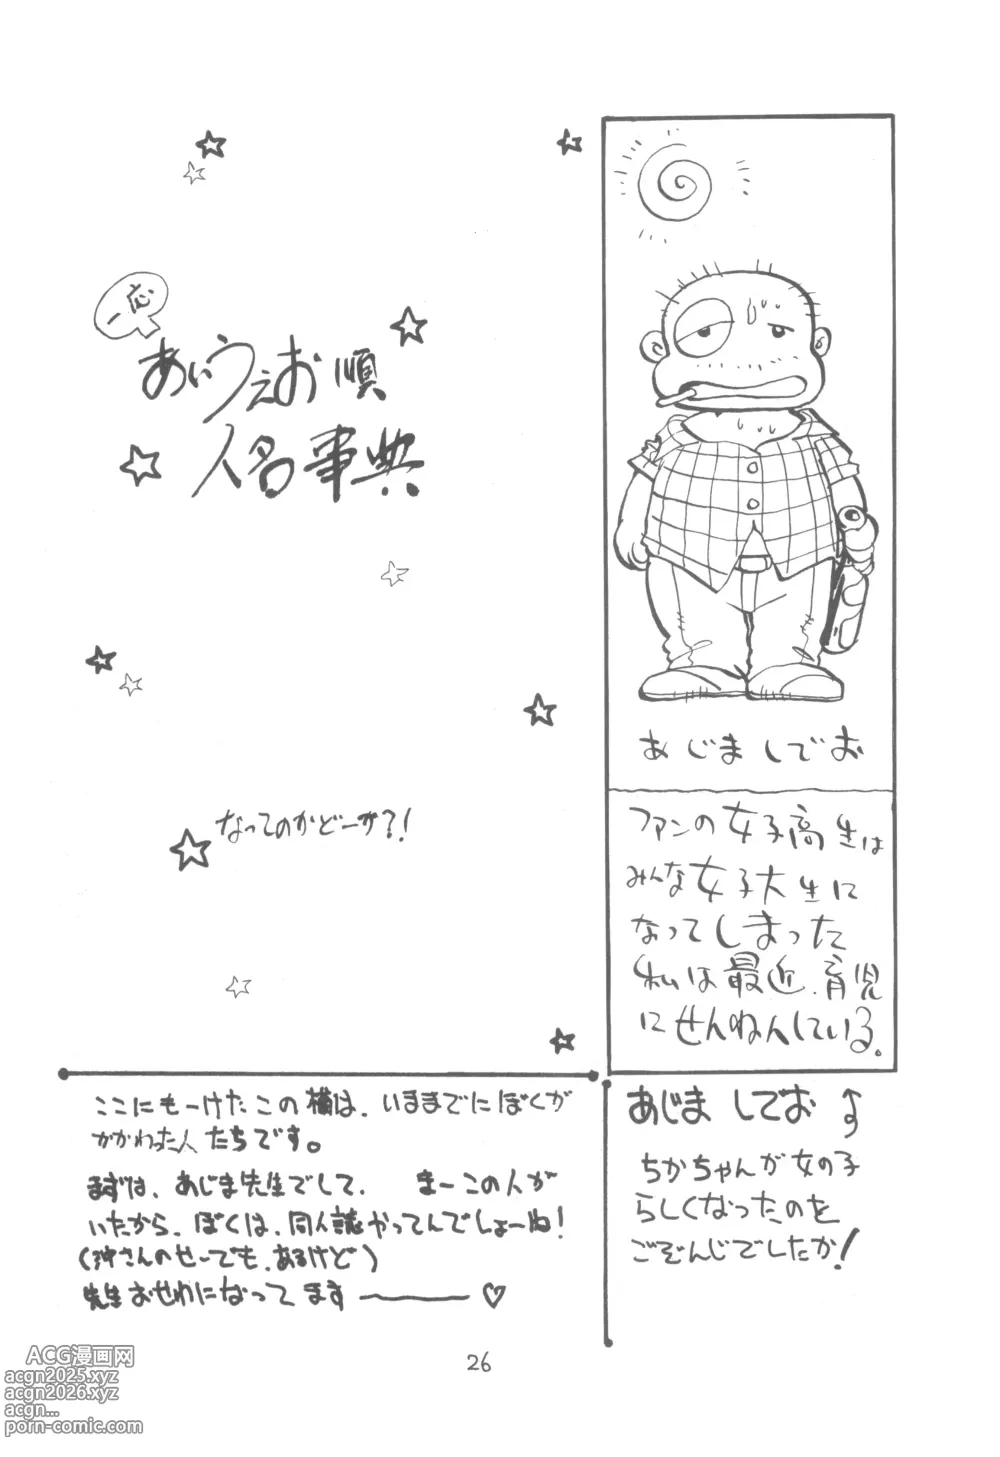 一応
あいうえお順
人名事典
なってのかどーか?!
あじましでお
ファンの女子高生は
みんな女子大生に
なってしまった
私は最近、育児
にせんねんしている。
ここにもーけたこの欄は、いままでにぼくが
かかわった人たちです。
まずは、あじま先生でして、 まーこの人が
いたから、ぼくは、同人誌やってんでしょーね!
(沖さんのせーでも、あるけど)
先生おせわになってます――♡
あじましでお
ちかちゃんが女の子
らしくなったのを
ごぞんじでしたか!
26
ACG漫画网
acgn2025.xyz
acgn2026.xyz
acgn...
porn-comic.com